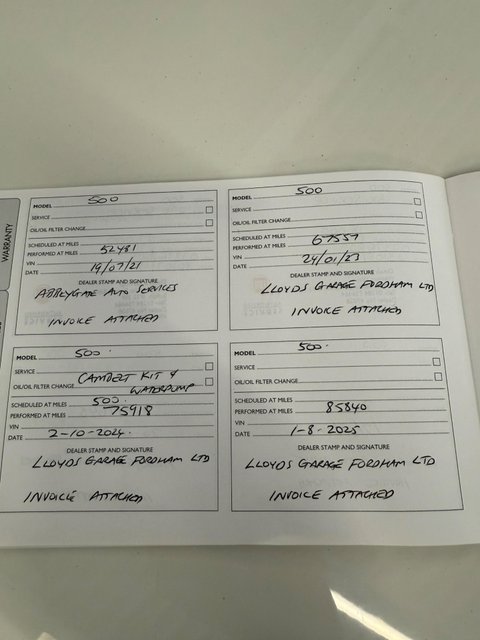 WARRANTY
MODEL 500
SERVICE
OIL/OIL FILTER CHANGE
SCHEDULED AT MILES
PERFORMED AT MILES 52481
VIN
DATE 19/07/21
DEALER STAMP AND SIGNATURE
ABBEYGATE AUTO SERVICES
INVOICE ATTACHED
MODEL 500
SERVICE
OIL/OIL FILTER CHANGE
SCHEDULED AT MILES
PERFORMED AT MILES 67557
VIN
DATE 24/01/23
DEALER STAMP AND SIGNATURE
LLOYDS GARAGE FORDHAM LTD
INVOICE ATTACHED
MODEL 500.
SERVICE
CAMBELT KIT &
OIL/OIL FILTER CHANGE WATERPUMP
SCHEDULED AT MILES 500.
PERFORMED AT MILES 75918
VIN
DATE 2-10-2024.
DEALER STAMP AND SIGNATURE
LLOYDS GARAGE FORDHAM LTD
INVOICE ATTACHED
MODEL 500.
SERVICE
OIL/OIL FILTER CHANGE
SCHEDULED AT MILES
PERFORMED AT MILES 85840
VIN
DATE 1-8-2025
DEALER STAMP AND SIGNATURE
LLOYDS GARAGE FORDHAM LTD
INVOICE ATTACHED